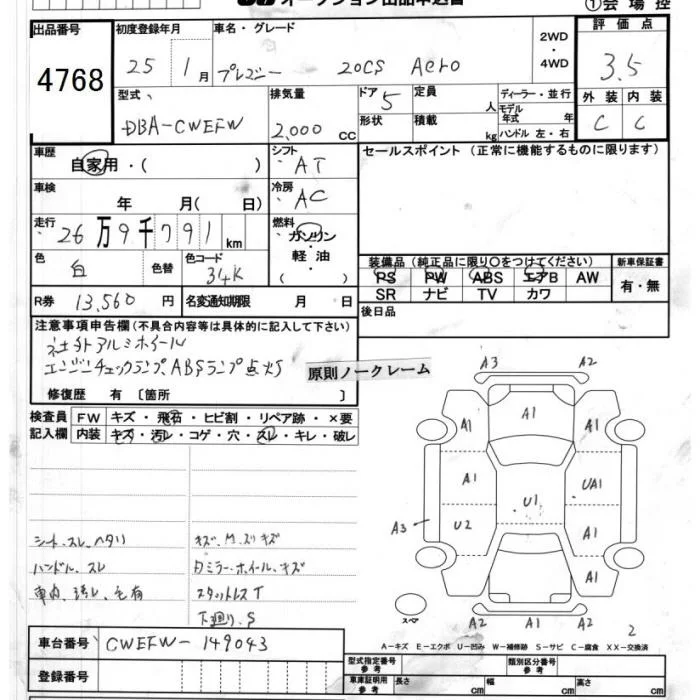 オークション出品申込書
①会場控
出品番号 初度登録年月 車名・グレード 2WD・4WD 評価点
4768 25 1月 プレマシー 20CS Aero 3.5
型式、 排気量 ドア 5 定員 人 ディーラー・並行 外装 内装
DBA-CWEFW 2,000 cc 形状 積載 kg モデル年式 年 ハンドル 左・右 C C
車歴 自家用・( ) シフト AT セールスポイント(正常に機能するものに限ります)
車検 年 月( 日) 冷房 AC
走行 26万9千791km 燃料 ガソリン
軽油
( )
色 白 色替 色コード 34K 装備品(純正品に限り〇をつけてください) 新車保証書
PS PW ABS エアB AW 有・無
SR ナビ TV カワ
R券 13,560 円 名変通知期限 月 日 後日品
注意事項申告欄(不具合内容等は具体的に記入して下さい)
社外アルミホイール
エンジンチェックランプ、ABSランプ点灯
原則ノークレーム
修復歴 有〔箇所 〕
検査員 FW キズ・飛石・ヒビ割・リペア跡・×要
記入欄 内装 キズ・汚レ・コゲ・穴・スレ・キレ・破レ
A3 A2
A1 A1 A1
A1 UA1
U1
A3 U2 A1
A1
スペア A2 A1 A2 2
シート、スレ、ヘタリ キズ、M.スリキズ
ハンドル、スレ ドアミラー・ホイール、キズ
車内、汚レ、毛有 スタットレスT
下廻り、S
A−キズ E−エクボ U−凹み W−補修跡 S−サビ C−腐食 XX−交換済
車台番号 CWEFW-149043
型式指定番号 参考 類別区分番号 参考
登録番号 車庫証明用 参考 長さ cm 幅 cm 高さ cm